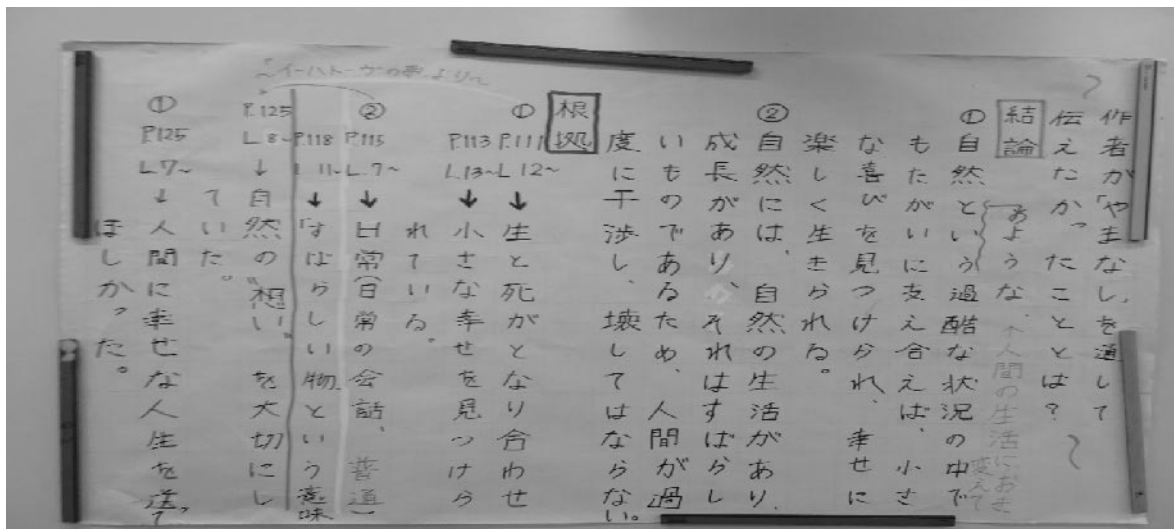 作者が「やまなし」を通して
伝えたかったこととは？
結論
人間の生活におき
変えて
① 自然という過酷な状況の中で
のような
もたがいに支え合えば、小さ
な喜びを見つけられ、幸せに
楽しく生きられる。
② 自然には、自然の生活があり、
成長があり、それはすばらし
いものであるため、人間が過
度に干渉し、壊してはならない。
根拠
① P.111 L.12~ ↓ 生と死がとなり合わせ
P.113 L.13~ ↓ 小さな幸せを見つけら
れている。
② P.115 L.7~ ↓ 日常(日常の会話、普通)
P.118 L.11~ ↓「すばらしい物」という意味
~イーハトーヴの夢より~
P.125 L.8~ ↓ 自然の"想い"を大切にし
ていた。
① P.125 L.7~ ↓ 人間に幸せな人生を送って
ほしかった。